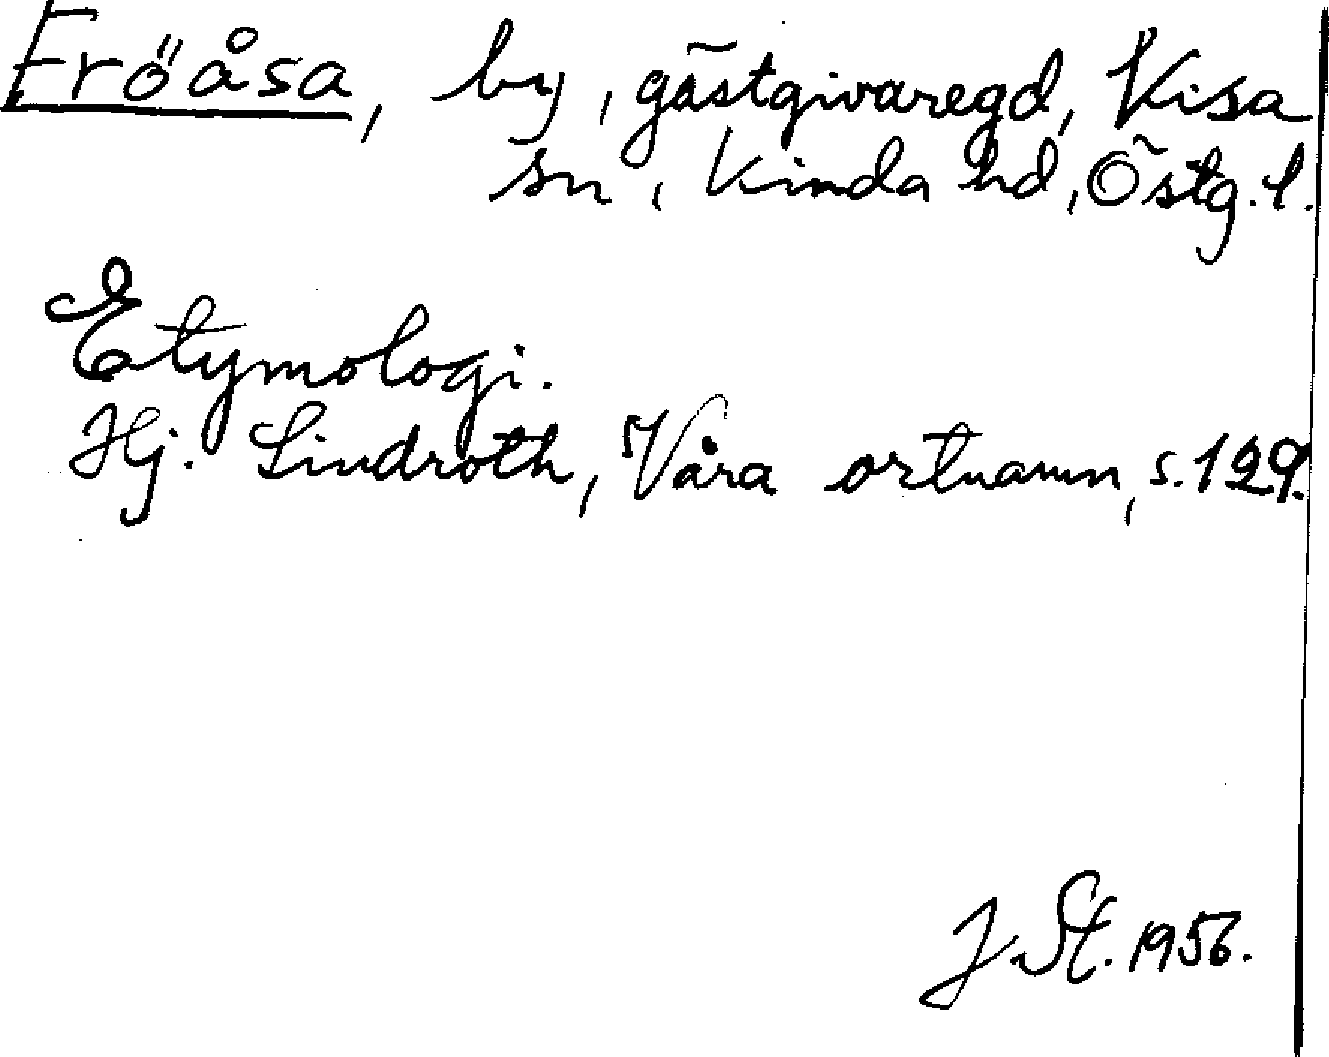 Fröåsa, by, gästgivaregd, Kisa
sn, Kinda hd, Östg. l.
Etymologi.
Hj. Lindroth, Våra ortnamn, s. 129.
J. St. 1956.